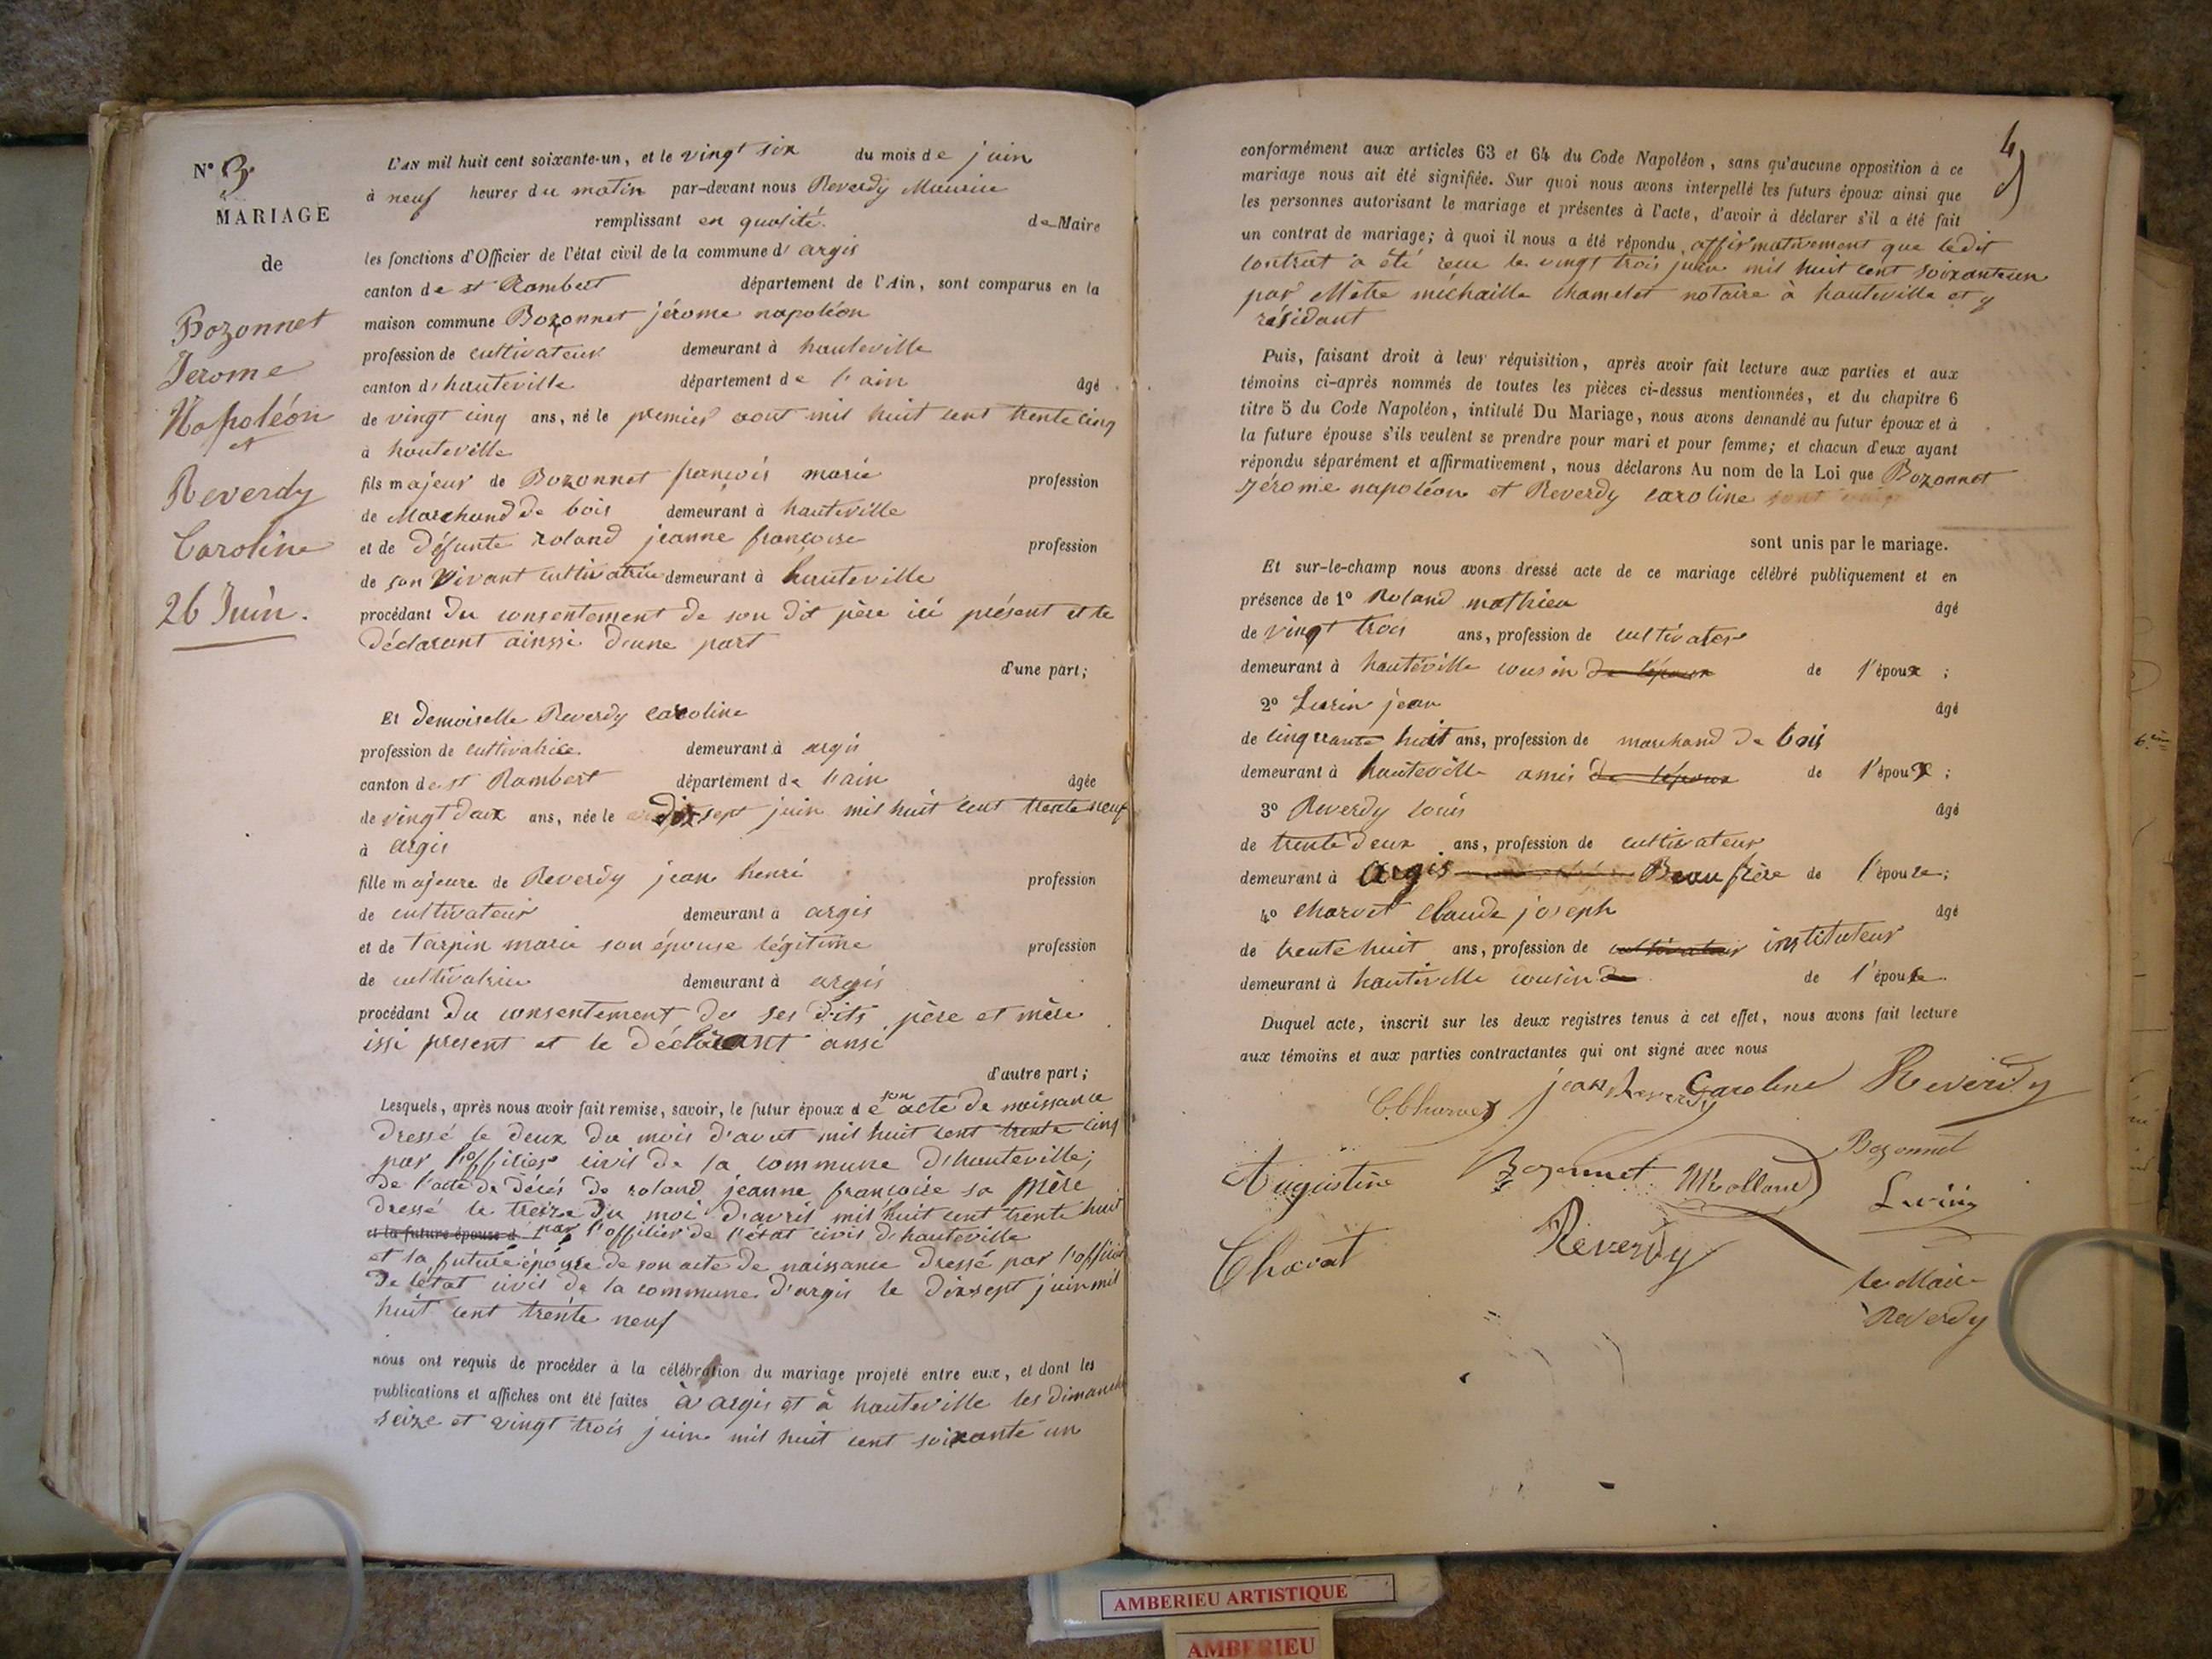 N° 3
MARIAGE
de
Bozonnet
Jerome
Napoléon
et
Reverdy
Caroline
26 Juin.
L'AN mil huit cent soixante-un, et le vingt six du mois de juin
à neuf heures du matin par-devant nous Reverdy Maurice
remplissant en qualité de Maire
les fonctions d'Officier de l'état civil de la commune d'argis
canton de st Rambert département de l'Ain, sont comparus en la
maison commune Bozonnet jérome napoléon
profession de cultivateur demeurant à hauteville
canton d'hauteville département de l'ain âgé
de vingt cinq ans, né le premier aout mil huit cent trente cinq
à hauteville
fils majeur de Bozonnet françois marie profession
de Marchand de bois demeurant à hauteville
et de défunte roland jeanne françoise profession
de son vivant cultivatrice demeurant à hauteville
procédant du consentement de son dit père ici présent et le
déclarant ainssi d'une part
d'une part;
Et demoiselle Reverdy caroline
profession de cultivatrice demeurant à argis
canton de st Rambert département de l'ain âgée
de vingt deux ans, née le dix sept juin mil huit cent trente neuf
à argis
fille majeure de Reverdy jean henri profession
de cultivateur demeurant à argis
et de tarpin marie son épouse légitime profession
de cultivatrice demeurant à argis
procédant du consentement de ses dits père et mère
issi present et le déclarant ansi
d'autre part;
Lesquels, après nous avoir fait remise, savoir, le futur époux de son acte de naissance
dressé le deux du mois d'avut mil huit cent trente cinq
par l'officier civil de la commune d'hauteville;
de l'acte de décés de roland jeanne françoise sa mère
dressé le treize du moi d'avril mil huit cent trente huit
et la future épouse d par l'officier de l'état civil d'hauteville
et la future épouse de son acte de naissance dressé par l'officier
de l'état civil de la commune d'argis le dixsept juin mil
huit cent trente neuf
nous ont requis de procéder à la célébration du mariage projeté entre eux, et dont les
publications et affiches ont été faites à argis et à hauteville les dimanche
seize et vingt trois juin mil huit cent soixante un
4
conformément aux articles 63 et 64 du Code Napoléon, sans qu'aucune opposition à ce
mariage nous ait été signifiée. Sur quoi nous avons interpellé les futurs époux ainsi que
les personnes autorisant le mariage et présentes à l'acte, d'avoir à déclarer s'il a été fait
un contrat de mariage; à quoi il nous a été répondu affirmativement que ledit
contrat a été recu le vingt trois juin mil huit cent soixante un
par Mètre michaille chamelet notaire à hauteville et y
résidant
Puis, faisant droit à leur réquisition, après avoir fait lecture aux parties et aux
témoins ci-après nommés de toutes les pièces ci-dessus mentionnées, et du chapitre 6
titre 5 du Code Napoléon, intitulé Du Mariage, nous avons demandé au futur époux et à
la future épouse s'ils veulent se prendre pour mari et pour femme; et chacun d'eux ayant
répondu séparément et affirmativement, nous déclarons Au nom de la Loi que Bozonnet
jérome napoléon et Reverdy caroline
sont unis par le mariage.
Et sur-le-champ nous avons dressé acte de ce mariage célébré publiquement et en
présence de 1° Roland mathieu âgé
de vingt trois ans, profession de cultivateur
demeurant à hauteville cousin de l'époux de l'époux;
2° Lurin jean âgé
de cinquante huit ans, profession de marchand de bois
demeurant à hauteville amis de l'époux de l'époux;
3° Reverdy louis âgé
de trente deux ans, profession de cultivateur
demeurant à argis Beau frère de l'épouse;
4° charvet claude joseph âgé
de trente huit ans, profession de cultivateur instituteur
demeurant à hauteville cousin de de l'épouse
Duquel acte, inscrit sur les deux registres tenus à cet effet, nous avons fait lecture
aux témoins et aux parties contractantes qui ont signé avec nous
jean Reverdy Caroline Reverdy
C Charvet
Augustine Bozonnet MRolland Bozonnet
Lurin
Charvat Reverdy
le Maire
Reverdy
AMBERIEU ARTISTIQUE
AMBERIEU